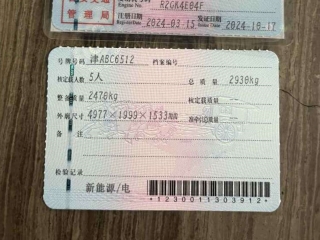 管理局
Engine No. R2GK4E04F
注册日期 2024-03-15 发证日期 2024-10-17
Register Date Issue Date
号牌号码 津ABC6512 档案编号
核定载人数 5人 总质量 2930kg
整备质量 2476kg 核定载质量
外廓尺寸 4977×1999×1533mm 准牵引总质量
备注
检验记录
新能源/电
*1230011303912*